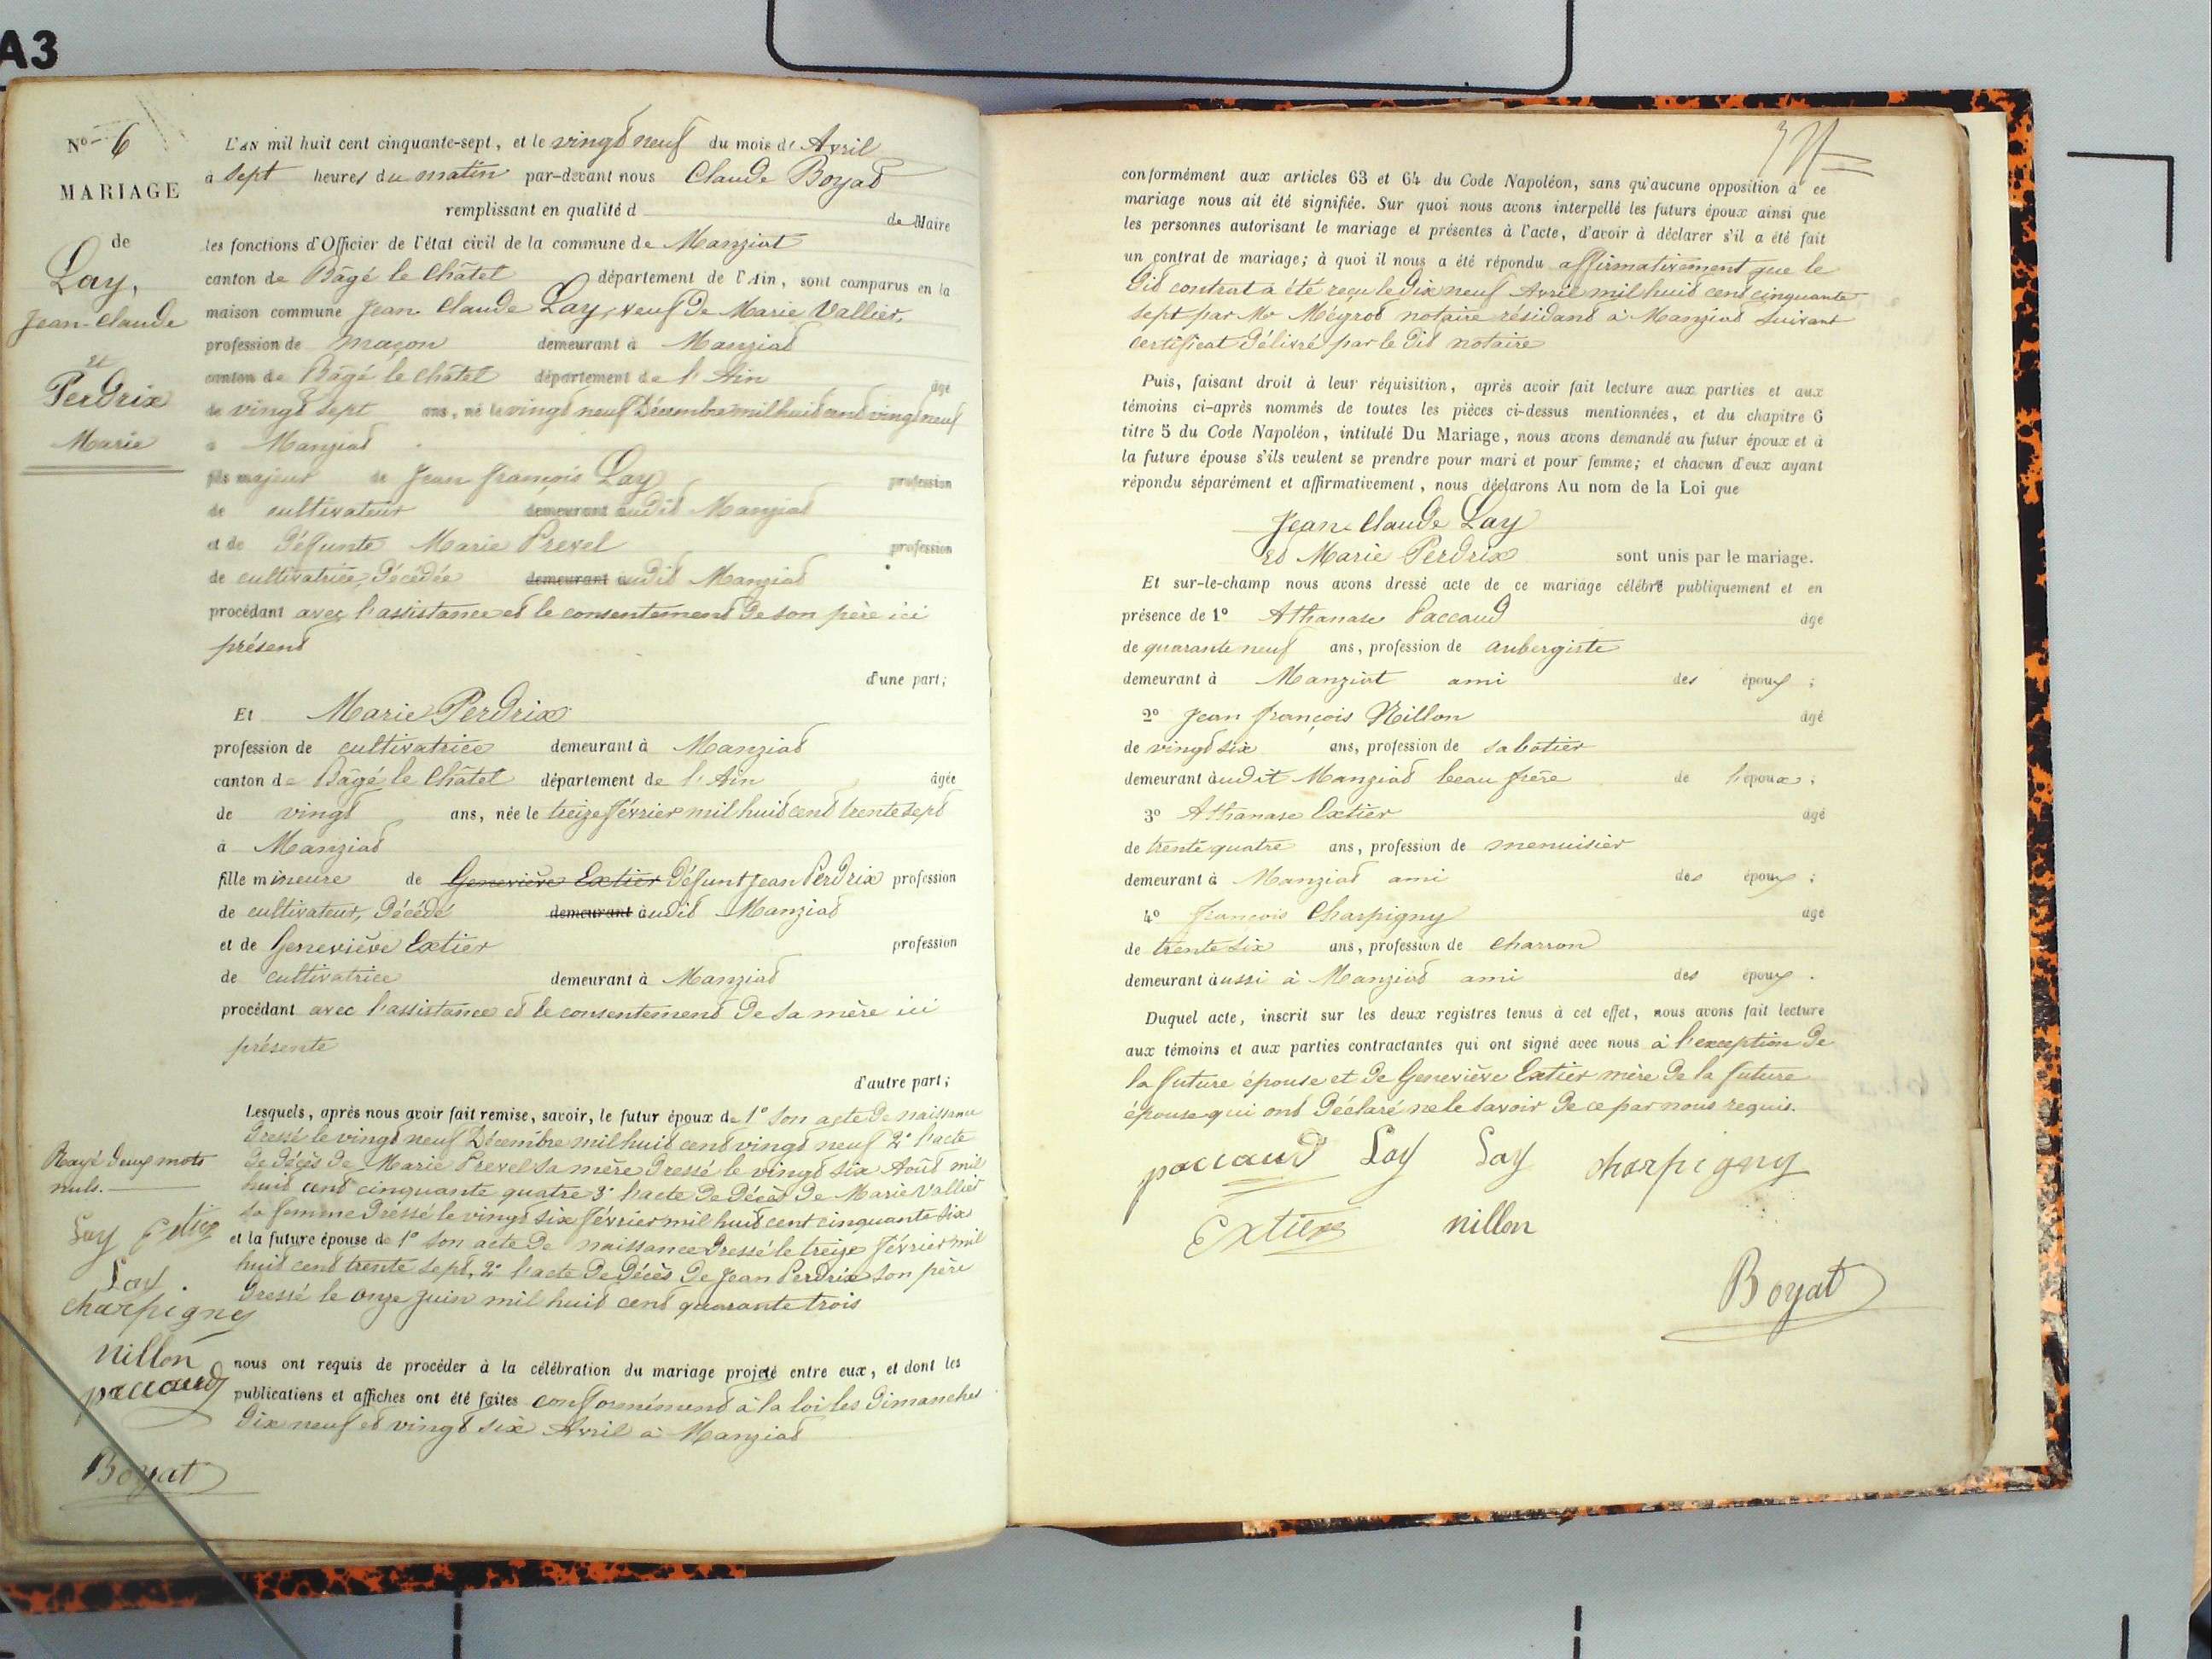 A3
N° 6
MARIAGE
de
Lay,
Jean-Claude
et
Perdrix
Marie
L'AN mil huit cent cinquante-sept, et le vingt neuf du mois de Avril
à sept heures du matin par-devant nous Claude Boyat
remplissant en qualité d de Maire
les fonctions d'Officier de l'état civil de la commune de Manziat
canton de Bâgé le Châtel département de l'Ain, sont comparus en la
maison commune Jean Claude Lay, veuf de Marie Vallier,
profession de maçon demeurant à Manziat
canton de Bâgé le Châtel département de l'Ain âgé
de vingt sept ans, né le vingt neuf Décembre mil huit cent vingt neuf
à Manziat
fils majeur de Jean françois Lay profession
de cultivateur demeurant audit Manziat
et de défunte Marie Prevel profession
de cultivatrice, décédée demeurant audit Manziat
procédant avec l'assistance et le consentement de son père ici
présent
d'une part;
Et Marie Perdrix
profession de cultivatrice demeurant à Manziat
canton de Bâgé le Châtel département de l'Ain âgée
de vingt ans, née le treize février mil huit cent trente sept
à Manziat
fille mineure de Geneviève Extier Défunt Jean Perdrix profession
de cultivateur, décédé demeurant audit Manziat
et de Geneviève Extier profession
de cultivatrice demeurant à Manziat
procédant avec l'assistance et le consentement de sa mère ici
présente
d'autre part;
Lesquels, après nous avoir fait remise, savoir, le futur époux de 1° son acte de naissance
dressé le vingt neuf Décembre mil huit cent vingt neuf 2° l'acte
de décès de Marie Prevel sa mère dressé le vingt six Août mil
huit cent cinquante quatre 3° l'acte de décès de Marie Vallier
sa femme dressé le vingt six février mil huit cent cinquante six
et la future épouse de 1° son acte de naissance dressé le treize février mil
huit cent trente sept, 2° l'acte de décès de Jean Perdrix son père
dressé le onze Juin mil huit cent quarante trois
nous ont requis de procéder à la célébration du mariage projeté entre eux, et dont les
publications et affiches ont été faites conformément à la loi les dimanches
dix neuf et vingt six Avril à Manziat
Rayé deux mots
nuls.
Lay Extier
Lay.
charpigny
nillon
paccaud
Boyat
conformément aux articles 63 et 64 du Code Napoléon, sans qu'aucune opposition à ce
mariage nous ait été signifiée. Sur quoi nous avons interpellé les futurs époux ainsi que
les personnes autorisant le mariage et présentes à l'acte, d'avoir à déclarer s'il a été fait
un contrat de mariage; à quoi il nous a été répondu affirmativement que le
dit contrat a été reçu le dix neuf Avril mil huit cent cinquante
sept par Mr Meyrod notaire résidant à Manziat suivant
certificat délivré par le dit notaire
Puis, faisant droit à leur réquisition, après avoir fait lecture aux parties et aux
témoins ci-après nommés de toutes les pièces ci-dessus mentionnées, et du chapitre 6
titre 5 du Code Napoléon, intitulé Du Mariage, nous avons demandé au futur époux et à
la future épouse s'ils veulent se prendre pour mari et pour femme; et chacun d'eux ayant
répondu séparément et affirmativement, nous déclarons Au nom de la Loi que
Jean-Claude Lay
Et Marie Perdrix sont unis par le mariage.
Et sur-le-champ nous avons dressé acte de ce mariage célébré publiquement et en
présence de 1° Athanase Paccaud âgé
de quarante neuf ans, profession de aubergiste
demeurant à Manziat ami des époux ;
2° Jean françois Nillon âgé
de vingt six ans, profession de sabotier
demeurant audit Manziat beau frère de l'époux ;
3° Athanase Extier âgé
de trente quatre ans, profession de menuisier
demeurant à Manziat ami des époux ;
4° françois Charpigny âgé
de trente six ans, profession de charron
demeurant aussi à Manziat ami des époux .
Duquel acte, inscrit sur les deux registres tenus à cet effet, nous avons fait lecture
aux témoins et aux parties contractantes qui ont signé avec nous à l'exception de
la future épouse et de Geneviève Extier mère de la future
épouse qui ont déclaré ne le savoir de ce par nous requis.
paccaud Lay Lay charpigny
Extier nillon
Boyat